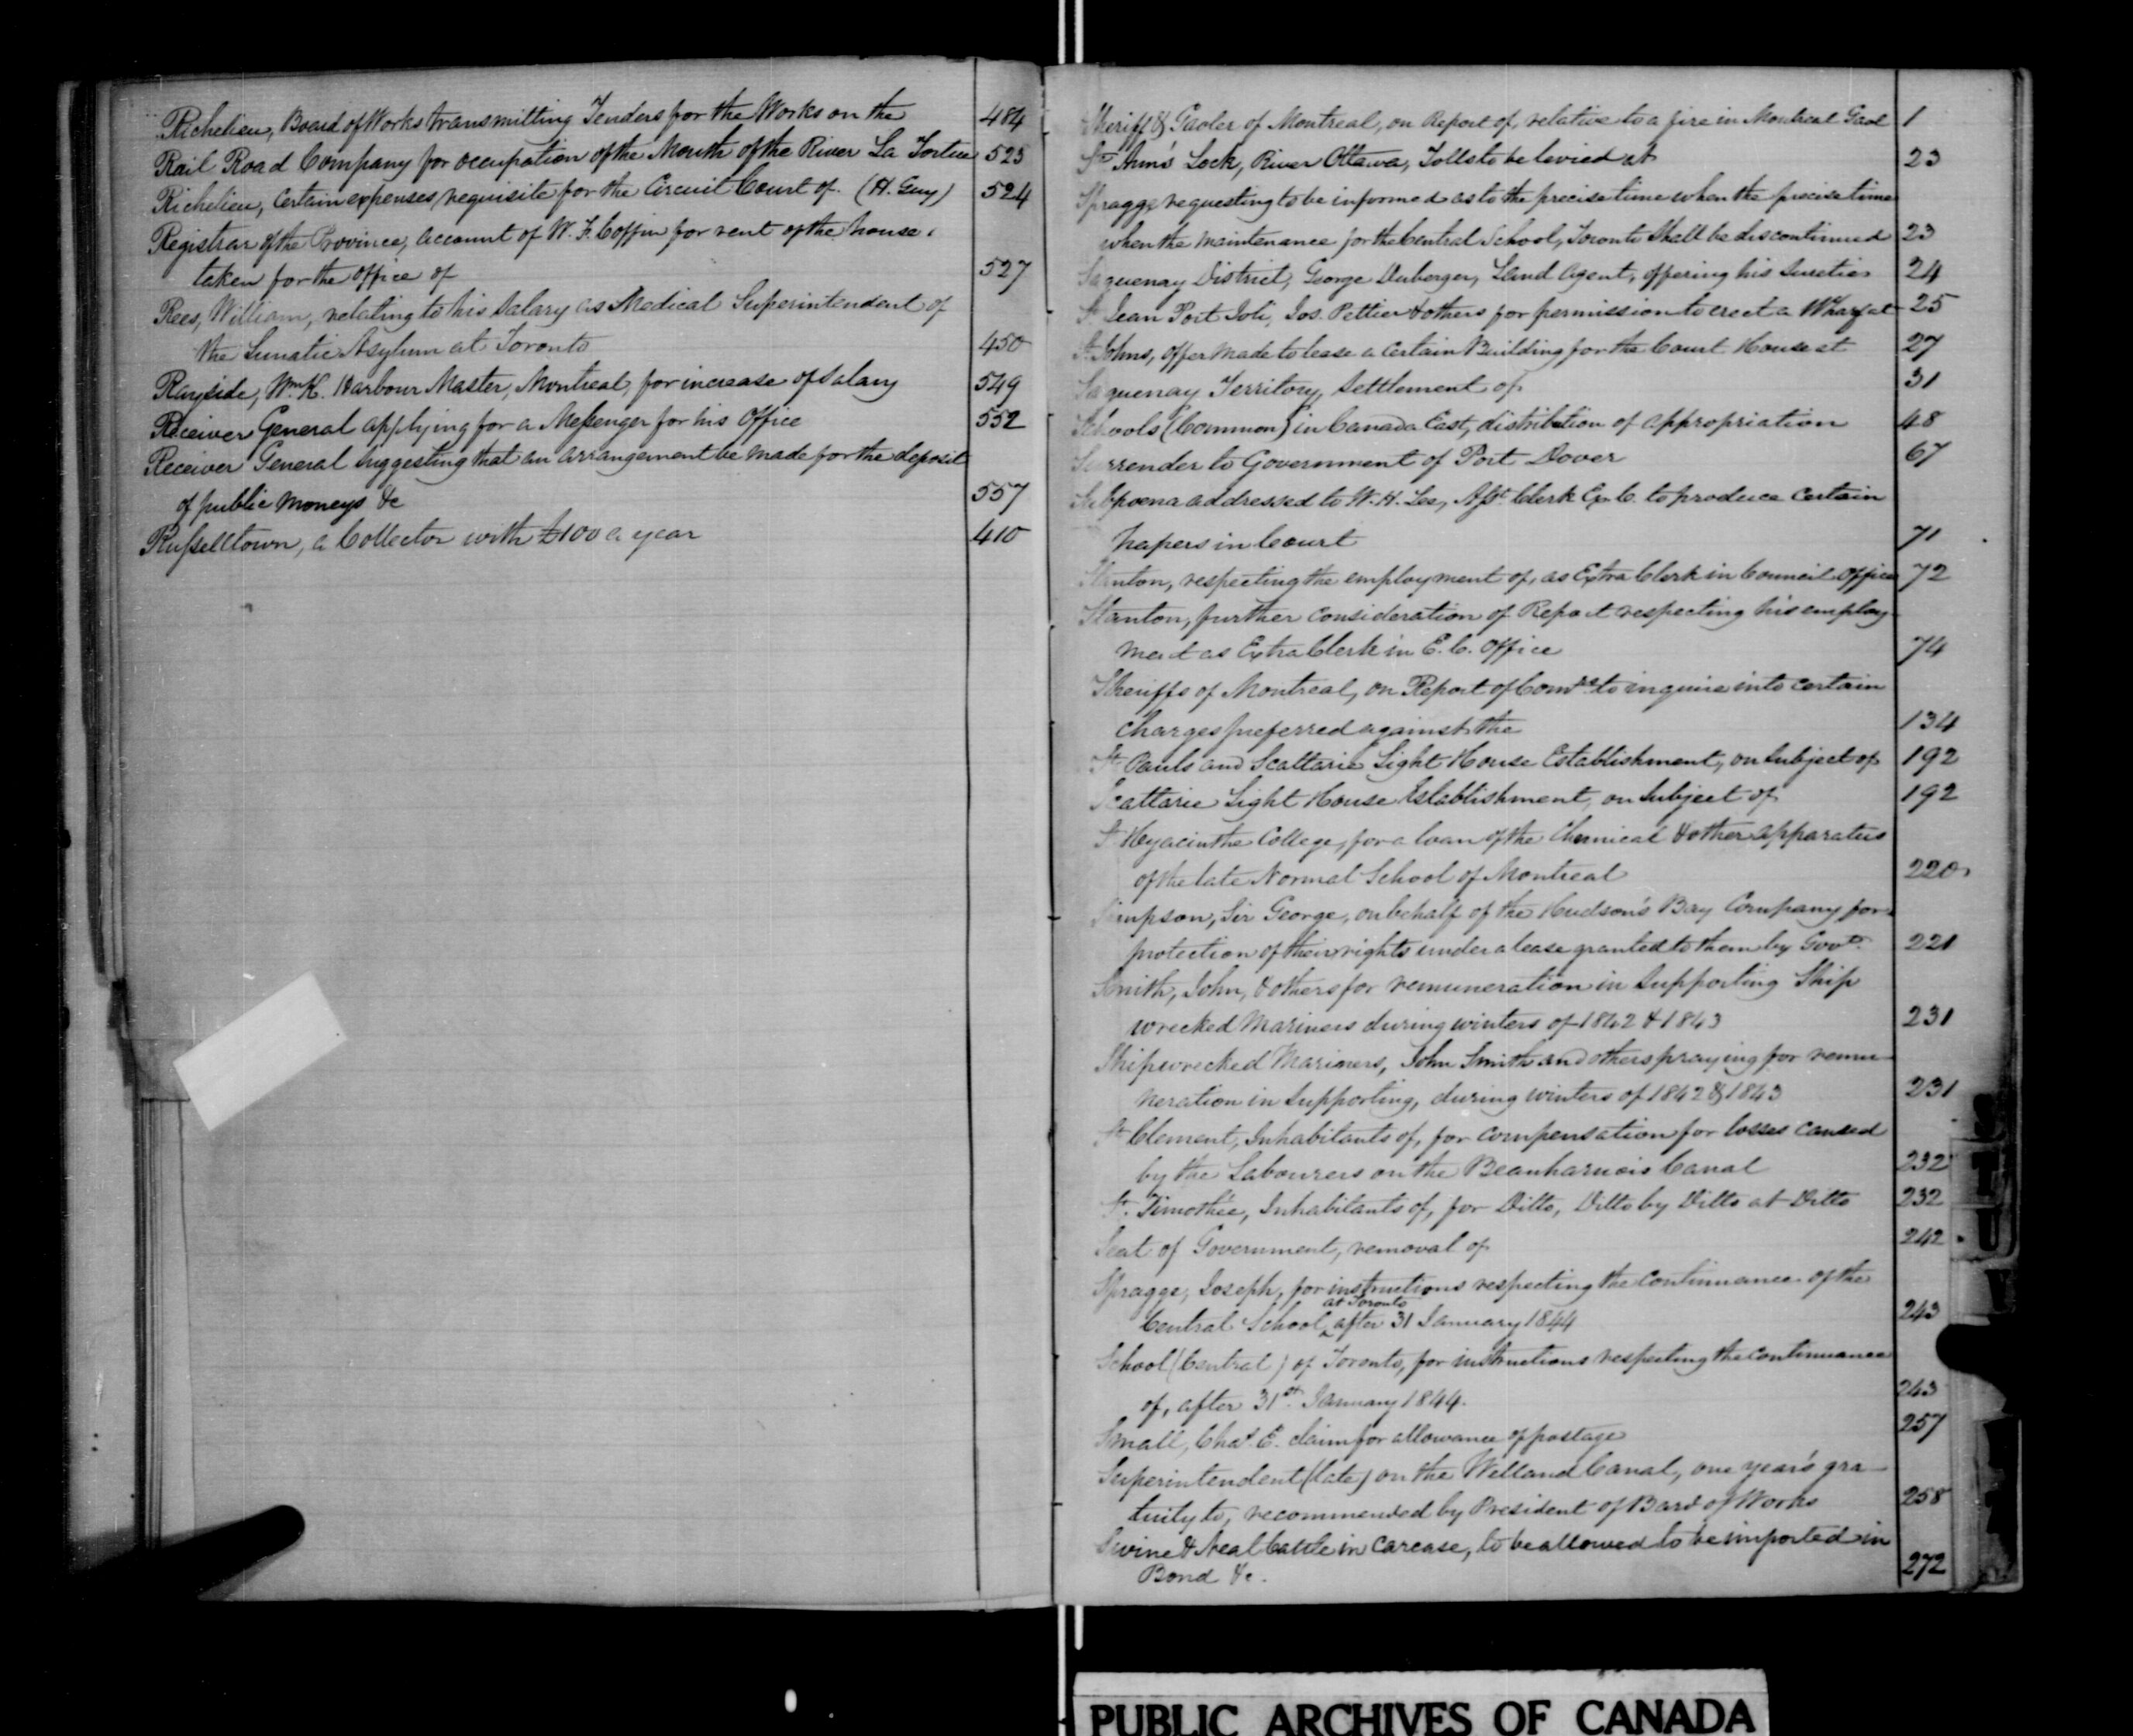 Richelieu, Board of Works transmitting Tenders for the Works on the 484
Rail Road Company for occupation of the Mouth of the River La Tortue 523
Richelieu, Certain expenses requisite for the Circuit Court of (H. Guy) 524
Registrar of the Province, account of W. F. Coffin for rent of the house
taken for the office of 527
Rees, William, relating to his Salary as Medical Superintendent of
the Lunatic Asylum at Toronto 450
Rayside, Wm. K. Harbour Master, Montreal, for increase of Salary 549
Receiver General applying for a Messenger for his Office 552
Receiver General Suggesting that an arrangement be made for the deposit
of public moneys &c 557
Russelltown, a Collector with £100 a year 410
Sheriff & Gaoler of Montreal, on Report of, relative to a fire in Montreal Gaol 1
St. Ann's Lock, River Ottawa, Tolls to be levied at 23
Spragge requesting to be informed as to the precise time when the precise time
when the maintenance for the Central School, Toronto Shall be discontinued 23
Saguenay District, George Duberger, Land Agent, offering his Sureties 24
St. Jean Port Joli, Jos. Pettier & others for permission to erect a Wharf at 25
St. Johns, offer made to lease a certain Building for the Court House at 27
Saguenay Territory, Settlement of 31
Schools (Common) in Canada East, distribution of appropriation 48
Surrender to Government of Port Dover 67
Subpoena addressed to W. H. Lee, Asst. Clerk Ex. C. to produce certain
papers in Court 71
Stanton, respecting the employment of, as Extra Clerk in Council Office 72
Stanton, further consideration of Report respecting his employ-
ment as Extra Clerk in E. C. Office 74
Sheriffs of Montreal, on Report of Comrs. to inquire into certain
charges preferred against the 134
St. Pauls and Scattarie Light House Establishment, on Subject of 192
Scattarie Light House Establishment, on Subject of 192
St. Hyacinthe College, for a loan of the Chemical & other apparatus
of the late Normal School of Montreal 220
Simpson, Sir George, on behalf of the Hudson's Bay Company for
protection of their rights under a lease granted to them by Govt. 221
Smith, John, & others for remuneration in Supporting Ship
wrecked Mariners during winters of 1842 & 1843 231
Shipwrecked Mariners, John Smith and others praying for remu-
neration in Supporting, during winters of 1842 & 1843 231
St. Clement, Inhabitants of, for compensation for losses caused
by the Labourers on the Beauharnois Canal 232
St. Timothée, Inhabitants of, for Ditto, Ditto by Ditto at Ditto 232
Seat of Government, removal of 242
Spragge, Joseph, for instructions respecting the Continuance of the
Central School at Toronto after 31 January 1844 243
School (Central) of Toronto, for instructions respecting the Continuance
of, after 31st. January 1844. 243
Small, Chas. E. claim for allowance of postage 257
Superintendent (late) on the Welland Canal, one year's gra-
tuity to, recommended by President of Bard of Works 258
Swine & Neat Cattle in Carcase, to be allowed to be imported in
Bond &c. 272
S
T
U
V
PUBLIC ARCHIVES OF CANADA